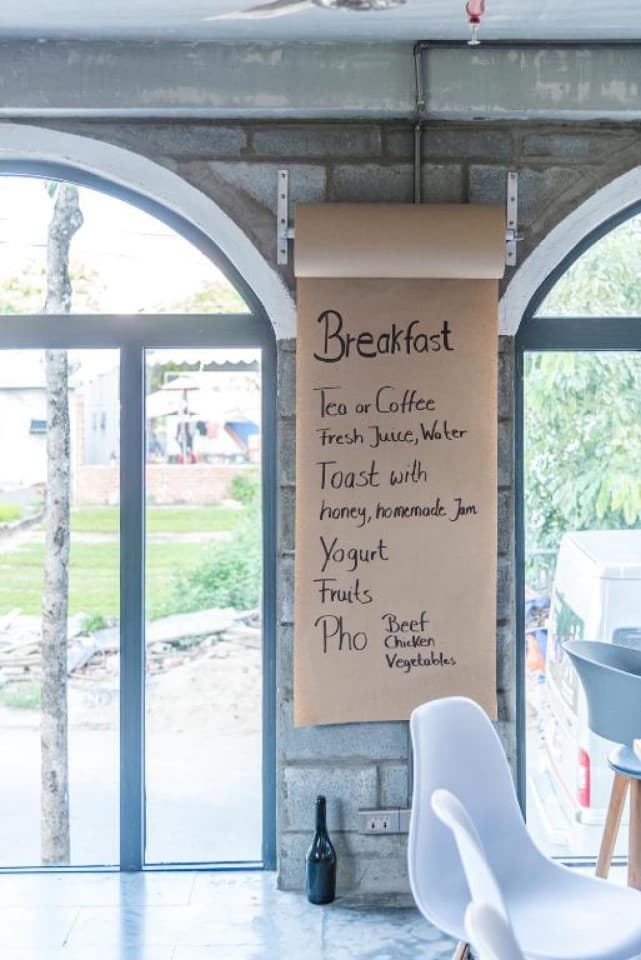 Breakfast
Tea or Coffee
Fresh Juice, Water
Toast with
honey, homemade Jam
Yogurt
Fruits
Pho Beef
Chicken
Vegetables